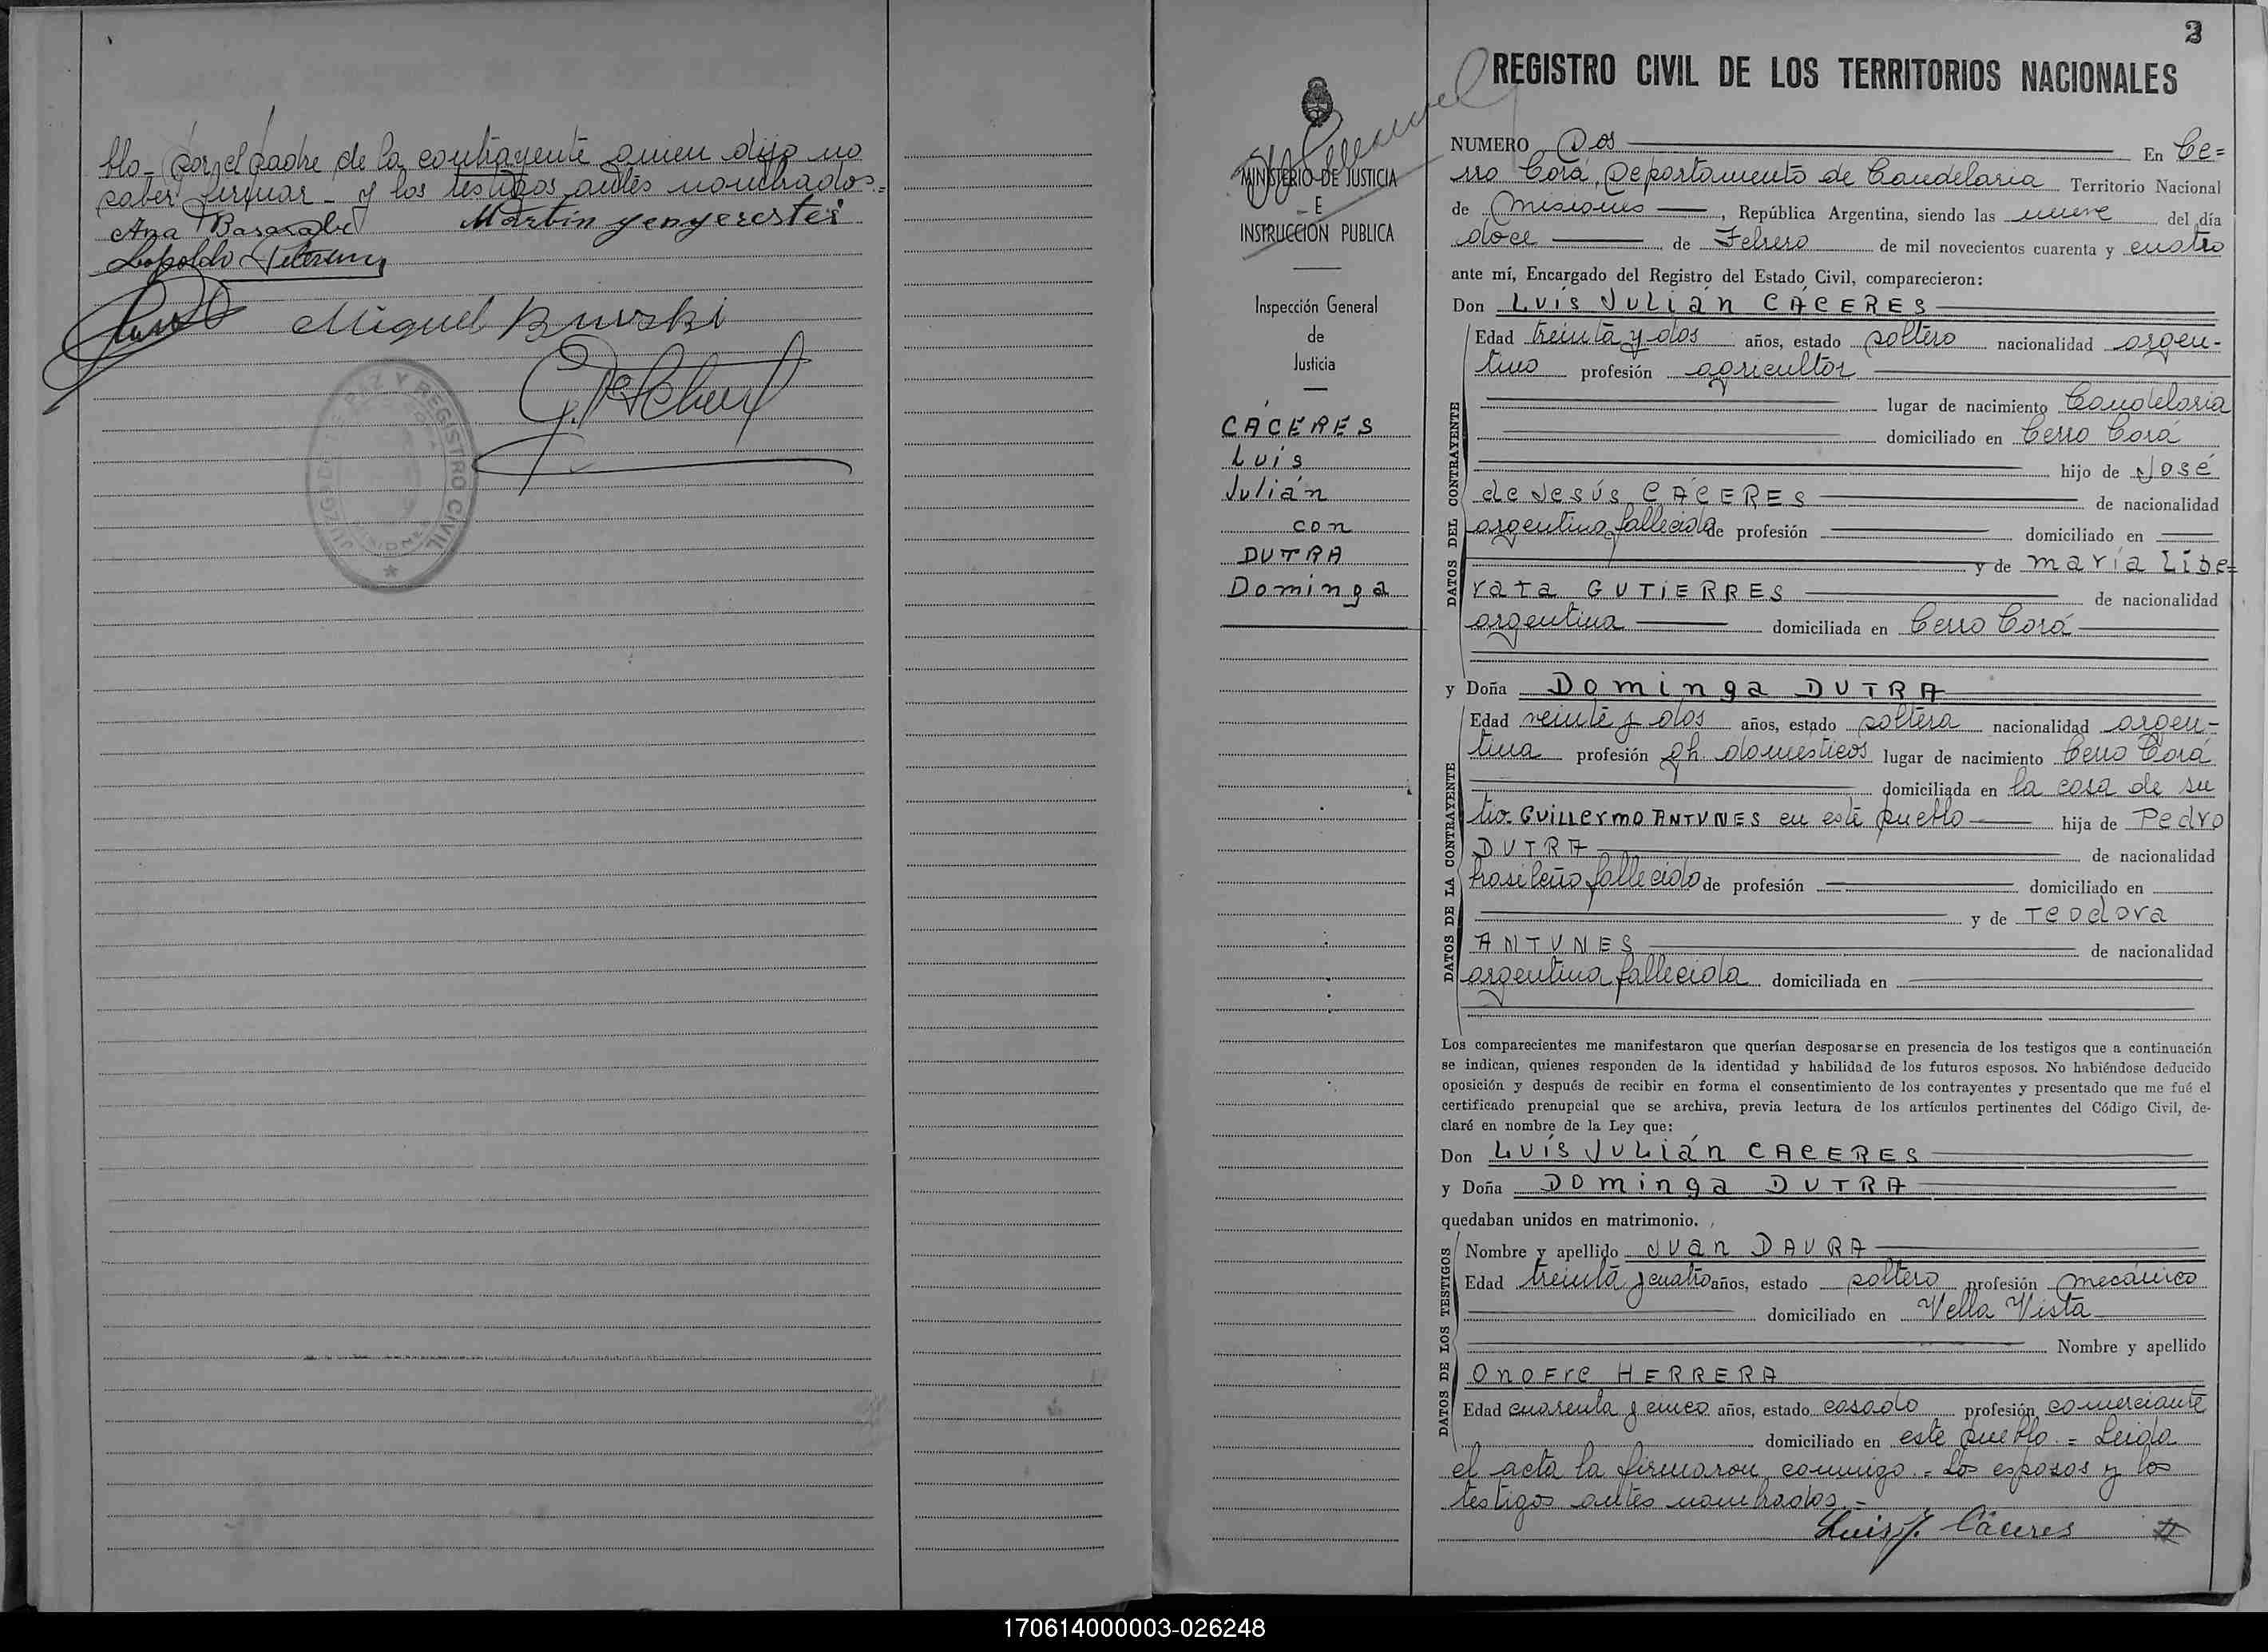 blo - por el padre de la contrayente quien dijo no
saber firmar - y los testigos antes nombrados.=
Ana
Martin
Leopoldo
Miguel Burski
JUZGADO DE PAZ Y REGISTRO CIVIL
3
REGISTRO CIVIL DE LOS TERRITORIOS NACIONALES
MINISTERIO DE JUSTICIA
E
INSTRUCCIÓN PUBLICA
Inspección General
de
Justicia
CÁCERES
Luís
Julián
con
DUTRA
Dominga
NUMERO Dos En Ce=
rro Corá, Departamento de Candelaria Territorio Nacional
de Misiones, República Argentina, siendo las nueve del día
doce de Febrero de mil novecientos cuarenta y cuatro
ante mí, Encargado del Registro del Estado Civil, comparecieron:
Don Luís Julián CÁCERES
DATOS DEL CONTRAYENTE
Edad treinta y dos años, estado soltero nacionalidad argen-
tino profesión agricultor
lugar de nacimiento Candelaria
domiciliado en Cerro Corá
hijo de José
de Jesús CÁCERES de nacionalidad
argentina fallecido de profesión domiciliado en
y de María Libe=
rata GUTIERRES de nacionalidad
argentina domiciliada en Cerro Corá
y Doña Dominga DUTRA
DATOS DE LA CONTRAYENTE
Edad veinte y dos años, estado soltera nacionalidad argen-
tina profesión qh. domésticos lugar de nacimiento Cerro Corá
domiciliada en la casa de su
tío Guillermo ANTUNES en este pueblo hija de Pedro
DUTRA de nacionalidad
brasileño fallecido de profesión domiciliado en
y de Teodora
ANTUNES de nacionalidad
argentina fallecida domiciliada en
Los comparecientes me manifestaron que querían desposarse en presencia de los testigos que a continuación
se indican, quienes responden de la identidad y habilidad de los futuros esposos. No habiéndose deducido
oposición y después de recibir en forma el consentimiento de los contrayentes y presentado que me fué el
certificado prenupcial que se archiva, previa lectura de los artículos pertinentes del Código Civil, de-
claré en nombre de la Ley que:
Don Luís Julián CÁCERES
y Doña Dominga DUTRA
quedaban unidos en matrimonio.
DATOS DE LOS TESTIGOS
Nombre y apellido Juan DAURA
Edad treinta y cuatro años, estado soltero profesión mecánico
domiciliado en Vella Vista
Nombre y apellido
Onofre HERRERA
Edad cuarenta y cinco años, estado casado profesión comerciante
domiciliado en este pueblo.= Leida
el acta la firmaron conmigo.= Los esposos y los
testigos antes nombrados.=
Luis J. Cáceres
170614000003-026248